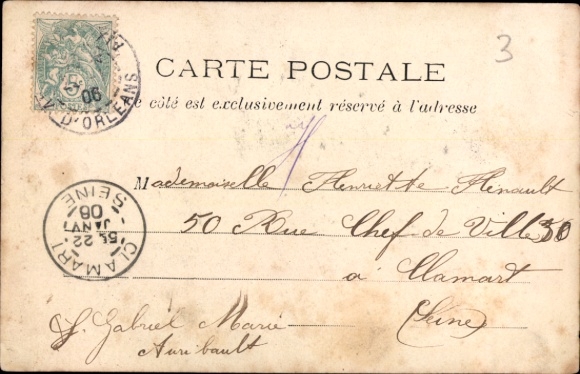 3
5
06
D'ORLEANS
CARTE POSTALE
e côté est exclusivement réservé à l'adresse
Mademoiselle Henriette Hénault
50 Rue Chef de Ville 50
à Clamart
(Seine)
CLAMART
5E 22
JANV
06
SEINE
Gabriel Marie